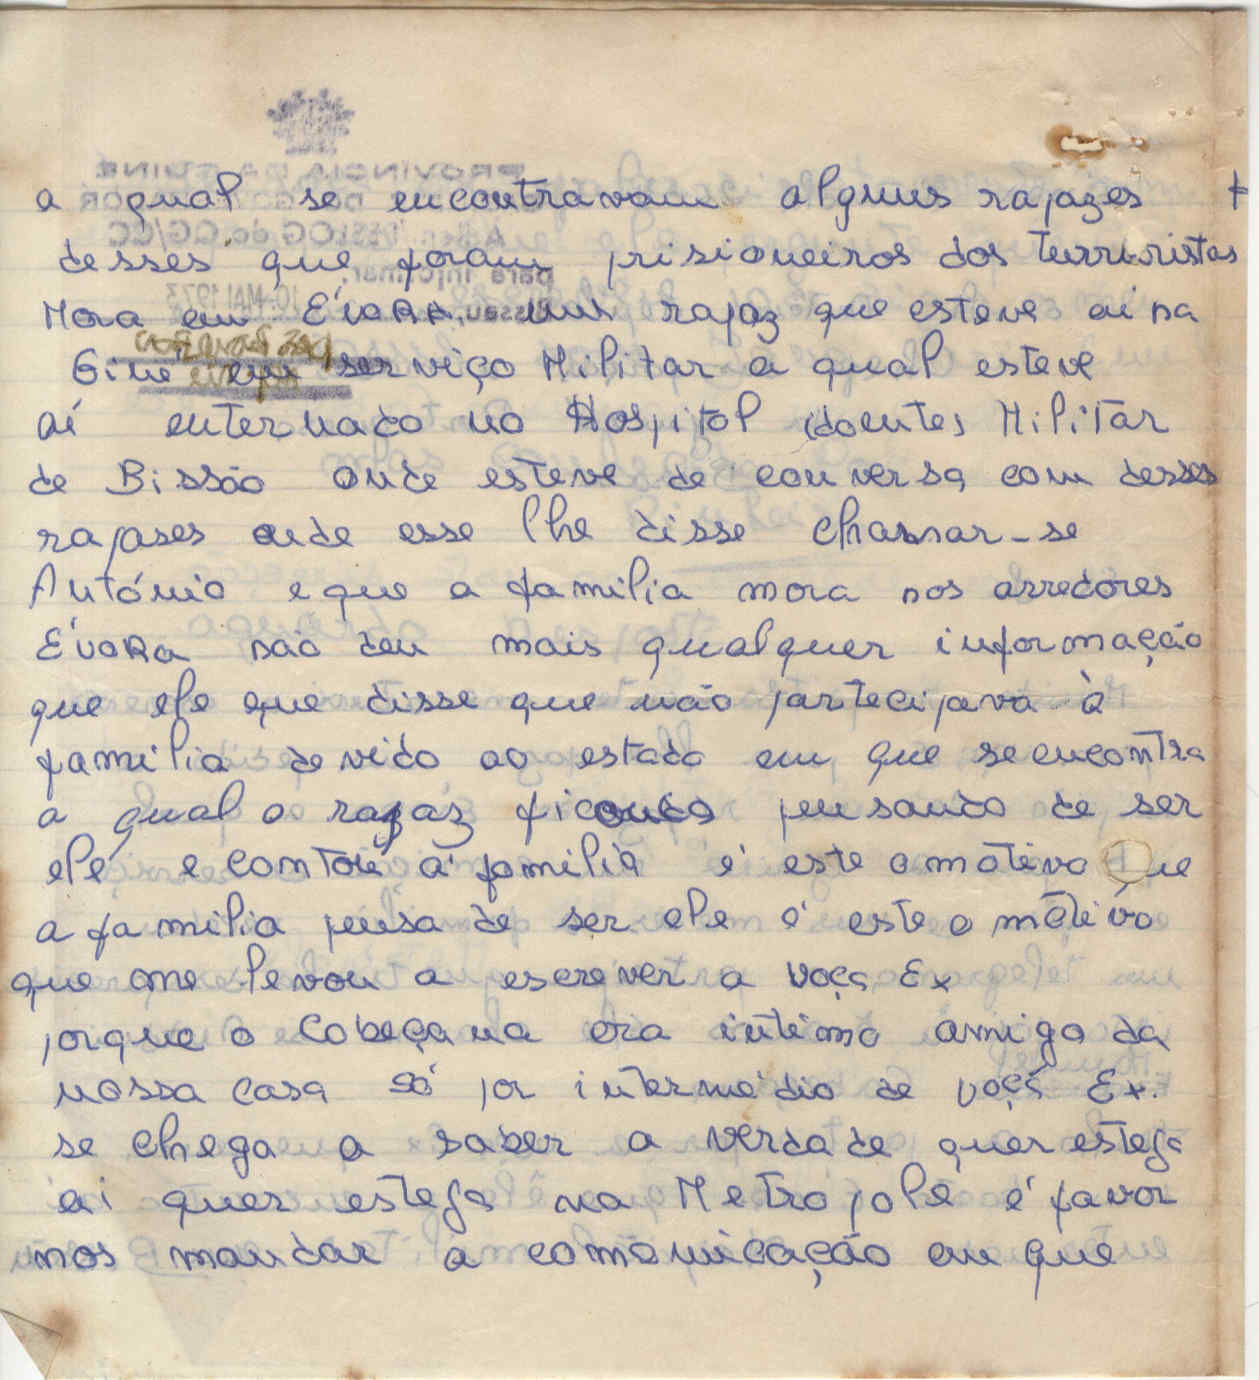 a qual se encontravam alguns rapazes
desses que foram prisioneiros dos turrouristas
Mora em ÉvoRA um rapaz que esteve aí na
Giné em serviço Militar a qual esteve
aí enternado no Hospitol (doentes Militar
de Bissão onde esteve de conversa com desses
rapases onde esse lhe disse chamar-se
António e que a familia mora nos arredores
ÉvoRa não deu mais qualquer informação
que ele que disse que não partecipava à
familia devido ao estado em que se encontra
a qual o rapaz ficando pensando de ser
ele e contou á familia é este o motivo que
a familia pensa de ser ele é este o motivo
que me levou a escrever a voçs Ex
porque o Cobeçana era intimo amigo da
nossa casa só por intermédio de voçs Ex.
se chega a saber a verdade quer esteja
ai quer esteja na Metropole é favor
nos mandar a comonicação em que